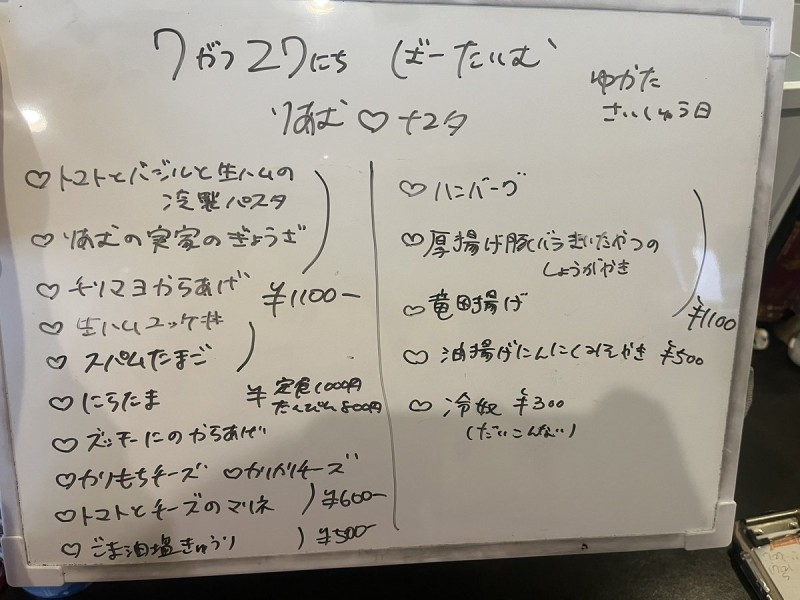 7がつ27にち ばーたいむ
りあむ♡ナユタ
ゆかた
さいしゅう日
♡トマトとバジルと生ハムの
冷製パスタ
♡りあむの実家のぎょうざ
♡チリマヨからあげ ¥1100-
♡生ハムユッケ丼
♡スパムたまご
♡にらたま ¥定食1000円
たんぴん800円
♡ズッキーニのからあげ
♡かりもちチーズ ♡かりかりチーズ
♡トマトとチーズのマリネ ¥600-
♡ごま油塩きゅうり ¥500-
♡ハンバーグ
♡厚揚げ豚バラまいたやつの
しょうがやき
♡竜田揚げ
¥1100
♡油揚げにんにくみそやき ¥500
♡冷奴 ¥300
(だいこんない)